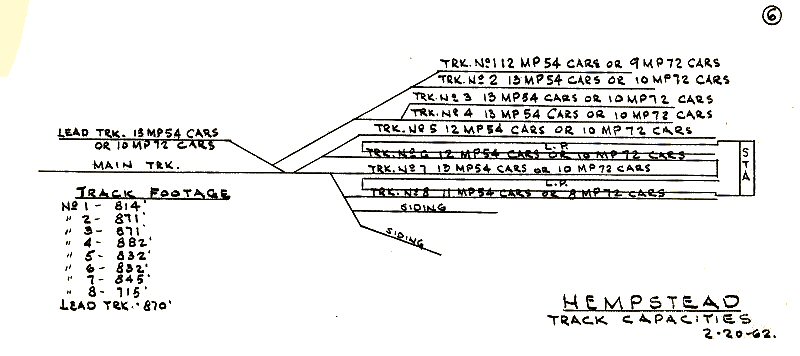 6
TRK. No 1 12 MP54 CARS OR 9 MP72 CARS
TRK. No 2 13 MP54 CARS OR 10 MP72 CARS
TRK. No 3 13 MP54 CARS OR 10 MP72 CARS
TRK. No 4 13 MP54 CARS OR 10 MP72 CARS
TRK. No 5 12 MP54 CARS OR 10 MP72 CARS
L.P.
TRK. No 6 12 MP54 CARS OR 10 MP72 CARS
TRK. No 7 13 MP54 CARS OR 10 MP72 CARS
L.P.
TRK. No 8 11 MP54 CARS OR 8 MP72 CARS
SIDING
SIDING
STA
LEAD TRK. 13 MP54 CARS
OR 10 MP72 CARS
MAIN TRK.
TRACK FOOTAGE
No 1 - 814'
" 2 - 871'
" 3 - 871'
" 4 - 882'
" 5 - 832'
" 6 - 832'
" 7 - 845'
" 8 - 715'
LEAD TRK. - 870'
HEMPSTEAD
TRACK CAPACITIES
2-20-62.